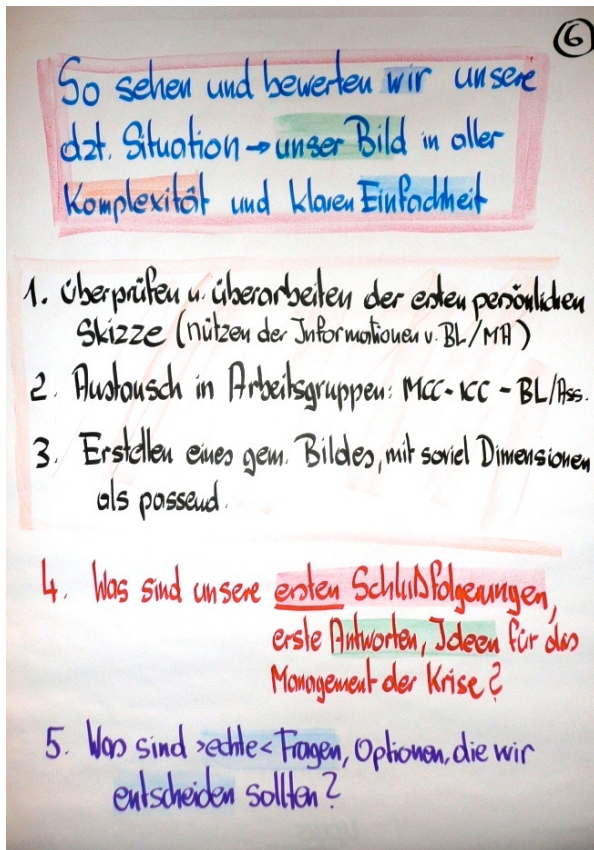 6
So sehen und bewerten wir unsere
dzt. Situation → unser Bild in aller
Komplexität und klaren Einfachheit
1. überprüfen u. überarbeiten der ersten persönlichen
Skizze (nützen der Informationen v. BL/MA)
2. Austausch in Arbeitsgruppen: MCC - KC - BL/Ass.
3. Erstellen eines gem. Bildes, mit soviel Dimensionen
als passend.
4. Was sind unsere ersten Schlußfolgerungen,
erste Antworten, Ideen für das
Management der Krise?
5. Was sind >echte< Fragen, Optionen, die wir
entscheiden sollten?